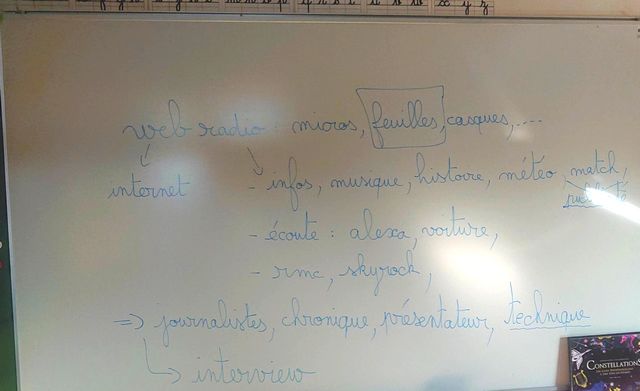 web radio : micros, feuilles, casques, ....
internet
- infos, musique, histoire, météo, match,
publicité
- écoute : alexa, voiture,
- rmc, skyrock,
=> journalistes, chronique, présentateur, technique
interview
CONSTELLATIONS